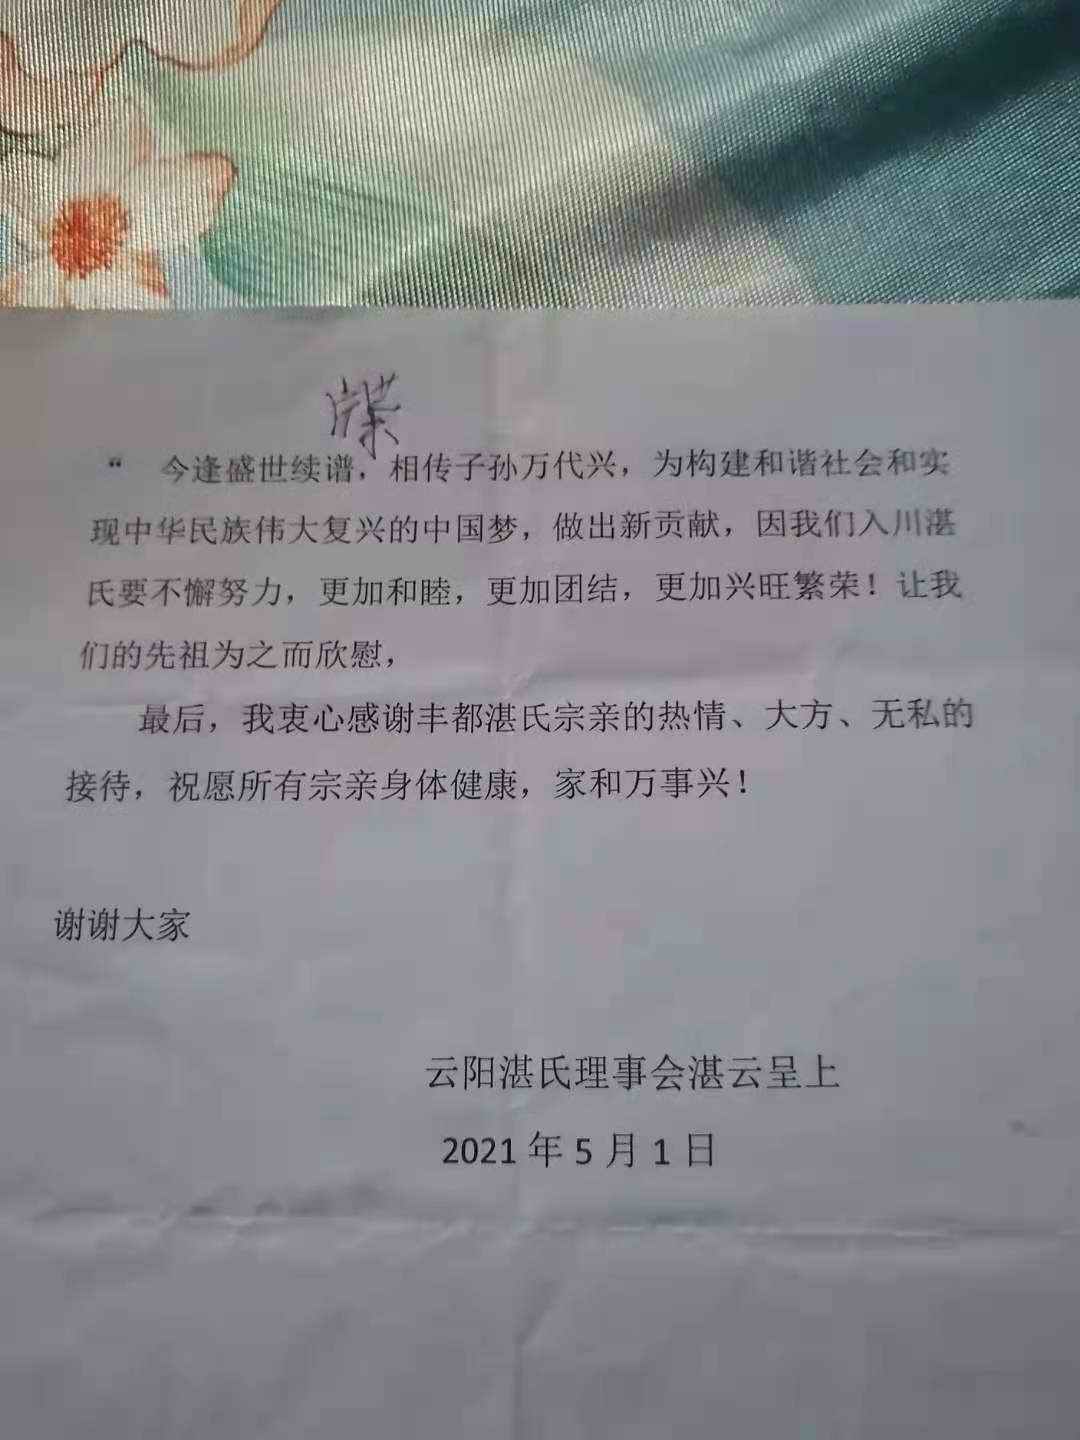 牒
“ 今逢盛世续谱，相传子孙万代兴，为构建和谐社会和实
现中华民族伟大复兴的中国梦，做出新贡献，因我们入川湛
氏要不懈努力，更加和睦，更加团结，更加兴旺繁荣！让我
们的先祖为之而欣慰，
最后，我衷心感谢丰都湛氏宗亲的热情、大方、无私的
接待，祝愿所有宗亲身体健康，家和万事兴！
谢谢大家
云阳湛氏理事会湛云呈上
2021 年 5 月 1 日